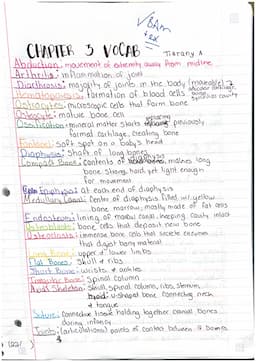 CHAPTER 3 VOCAB
Abduction: movement of extremity away from midline
Arthritis: inflammation of joint
Diarthrosis: majority of joints in the body (moveable)
Hematopoiesis: formation of blood cells
Osteocytes: microscopic cells that form bone
Osteocyte: mature bone cell
Ossification: mineral matter starts replacing previously
formed cartilage, creating bone
Fontanel: soft spot on a baby's head
Diaphysis: shaft of long bones
Compact Bone: contents of diaphysis, makes long
bone strong, hard, yet light enough
for movement
Epiphysis: at each end of diaphysis
Medullary Canal: center of diaphysis filled w/ yellow
bone marrow, mostly made of fat cells
Endosteum: lining of marrow canal, keeping cavity intact
Osteoblasts: bone cells that deposit new bone
Osteoclasts: immense bone cells that secrete enzymes
that digest bony material
Long Bones: upper + lower limbs
Flat Bones: Skull + ribs
Short Bones: wrists + ankles
Irregular Bones: Spinal column
Axial Skeleton: Skull, spinal column, ribs, sternum,
hyoid: u-shaped bone connecting neck
+ tongue
Suture: connective tissue holding together cranial bones
during infancy
Joints: (articulations) points of contact between 2 bones